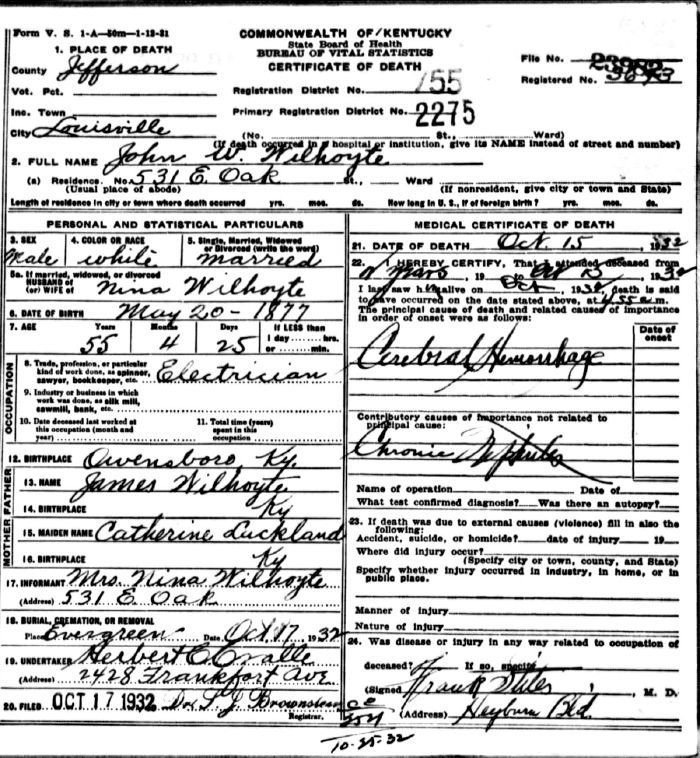 Form V. S. 1-A—50m—1-13-31
COMMONWEALTH OF KENTUCKY
State Board of Health
BUREAU OF VITAL STATISTICS
CERTIFICATE OF DEATH
File No.
Registered No.
1. PLACE OF DEATH
County Jefferson
Vot. Pct.
Inc. Town
City Louisville
Registration District No. 755
Primary Registration District No. 2275
(No. St., Ward)
(If death occurred in a hospital or institution, give its NAME instead of street and number)
2. FULL NAME John W. Wilhoyte
(a) Residence. No. 531 E. Oak St., Ward
(Usual place of abode) (If nonresident, give city or town and State)
Length of residence in city or town where death occurred yrs. mos. ds. How long in U. S., if of foreign birth? yrs. mos. ds.
PERSONAL AND STATISTICAL PARTICULARS
3. SEX
Male
4. COLOR OR RACE
white
5. Single, Married, Widowed
or Divorced (write the word)
married
5a. If married, widowed, or divorced
HUSBAND of
(or) WIFE of Nina Wilhoyte
6. DATE OF BIRTH May 20 - 1877
7. AGE Years Months Days If LESS than
1 day hrs.
55 4 25 or min.
OCCUPATION
8. Trade, profession, or particular
kind of work done, as spinner,
sawyer, bookkeeper, etc. Electrician
9. Industry or business in which
work was done, as silk mill,
sawmill, bank, etc.
10. Date deceased last worked at
this occupation (month and
year)
11. Total time (years)
spent in this
occupation
12. BIRTHPLACE Owensboro, Ky.
MOTHER FATHER
13. NAME James Wilhoyte
14. BIRTHPLACE Ky
15. MAIDEN NAME Catherine Luckland
16. BIRTHPLACE Ky
17. INFORMANT Mrs. Nina Wilhoyte
(Address) 531 E. Oak
18. BURIAL, CREMATION, OR REMOVAL
Place Evergreen Date Oct 17, 1932
19. UNDERTAKER Herbert C. Cralle
(Address) 2428 Frankfort Ave
20. FILED OCT 17 1932 Dr. L. J. Brownstein
Registrar.
MEDICAL CERTIFICATE OF DEATH
21. DATE OF DEATH Oct. 15, 1932
22. I HEREBY CERTIFY, That I attended deceased from
, 19 to Oct 15, 1932
I last saw him alive on Oct , 1932 death is said
to have occurred on the date stated above, at 4:55 a.m.
The principal cause of death and related causes of importance
in order of onset were as follows:
Date of
onset
Cerebral Hemorrhage
Contributory causes of importance not related to
principal cause:
Chronic Nephritis
Name of operation Date of
What test confirmed diagnosis? Was there an autopsy?
23. If death was due to external causes (violence) fill in also the
following:
Accident, suicide, or homicide? date of injury 19
Where did injury occur?
(Specify city or town, county, and State)
Specify whether injury occurred in industry, in home, or in
public place.
Manner of injury
Nature of injury
24. Was disease or injury in any way related to occupation of
deceased? If so, specify
(Signed) Frank Stiles, M. D.
(Address) Heyburn Bld
10-25-32